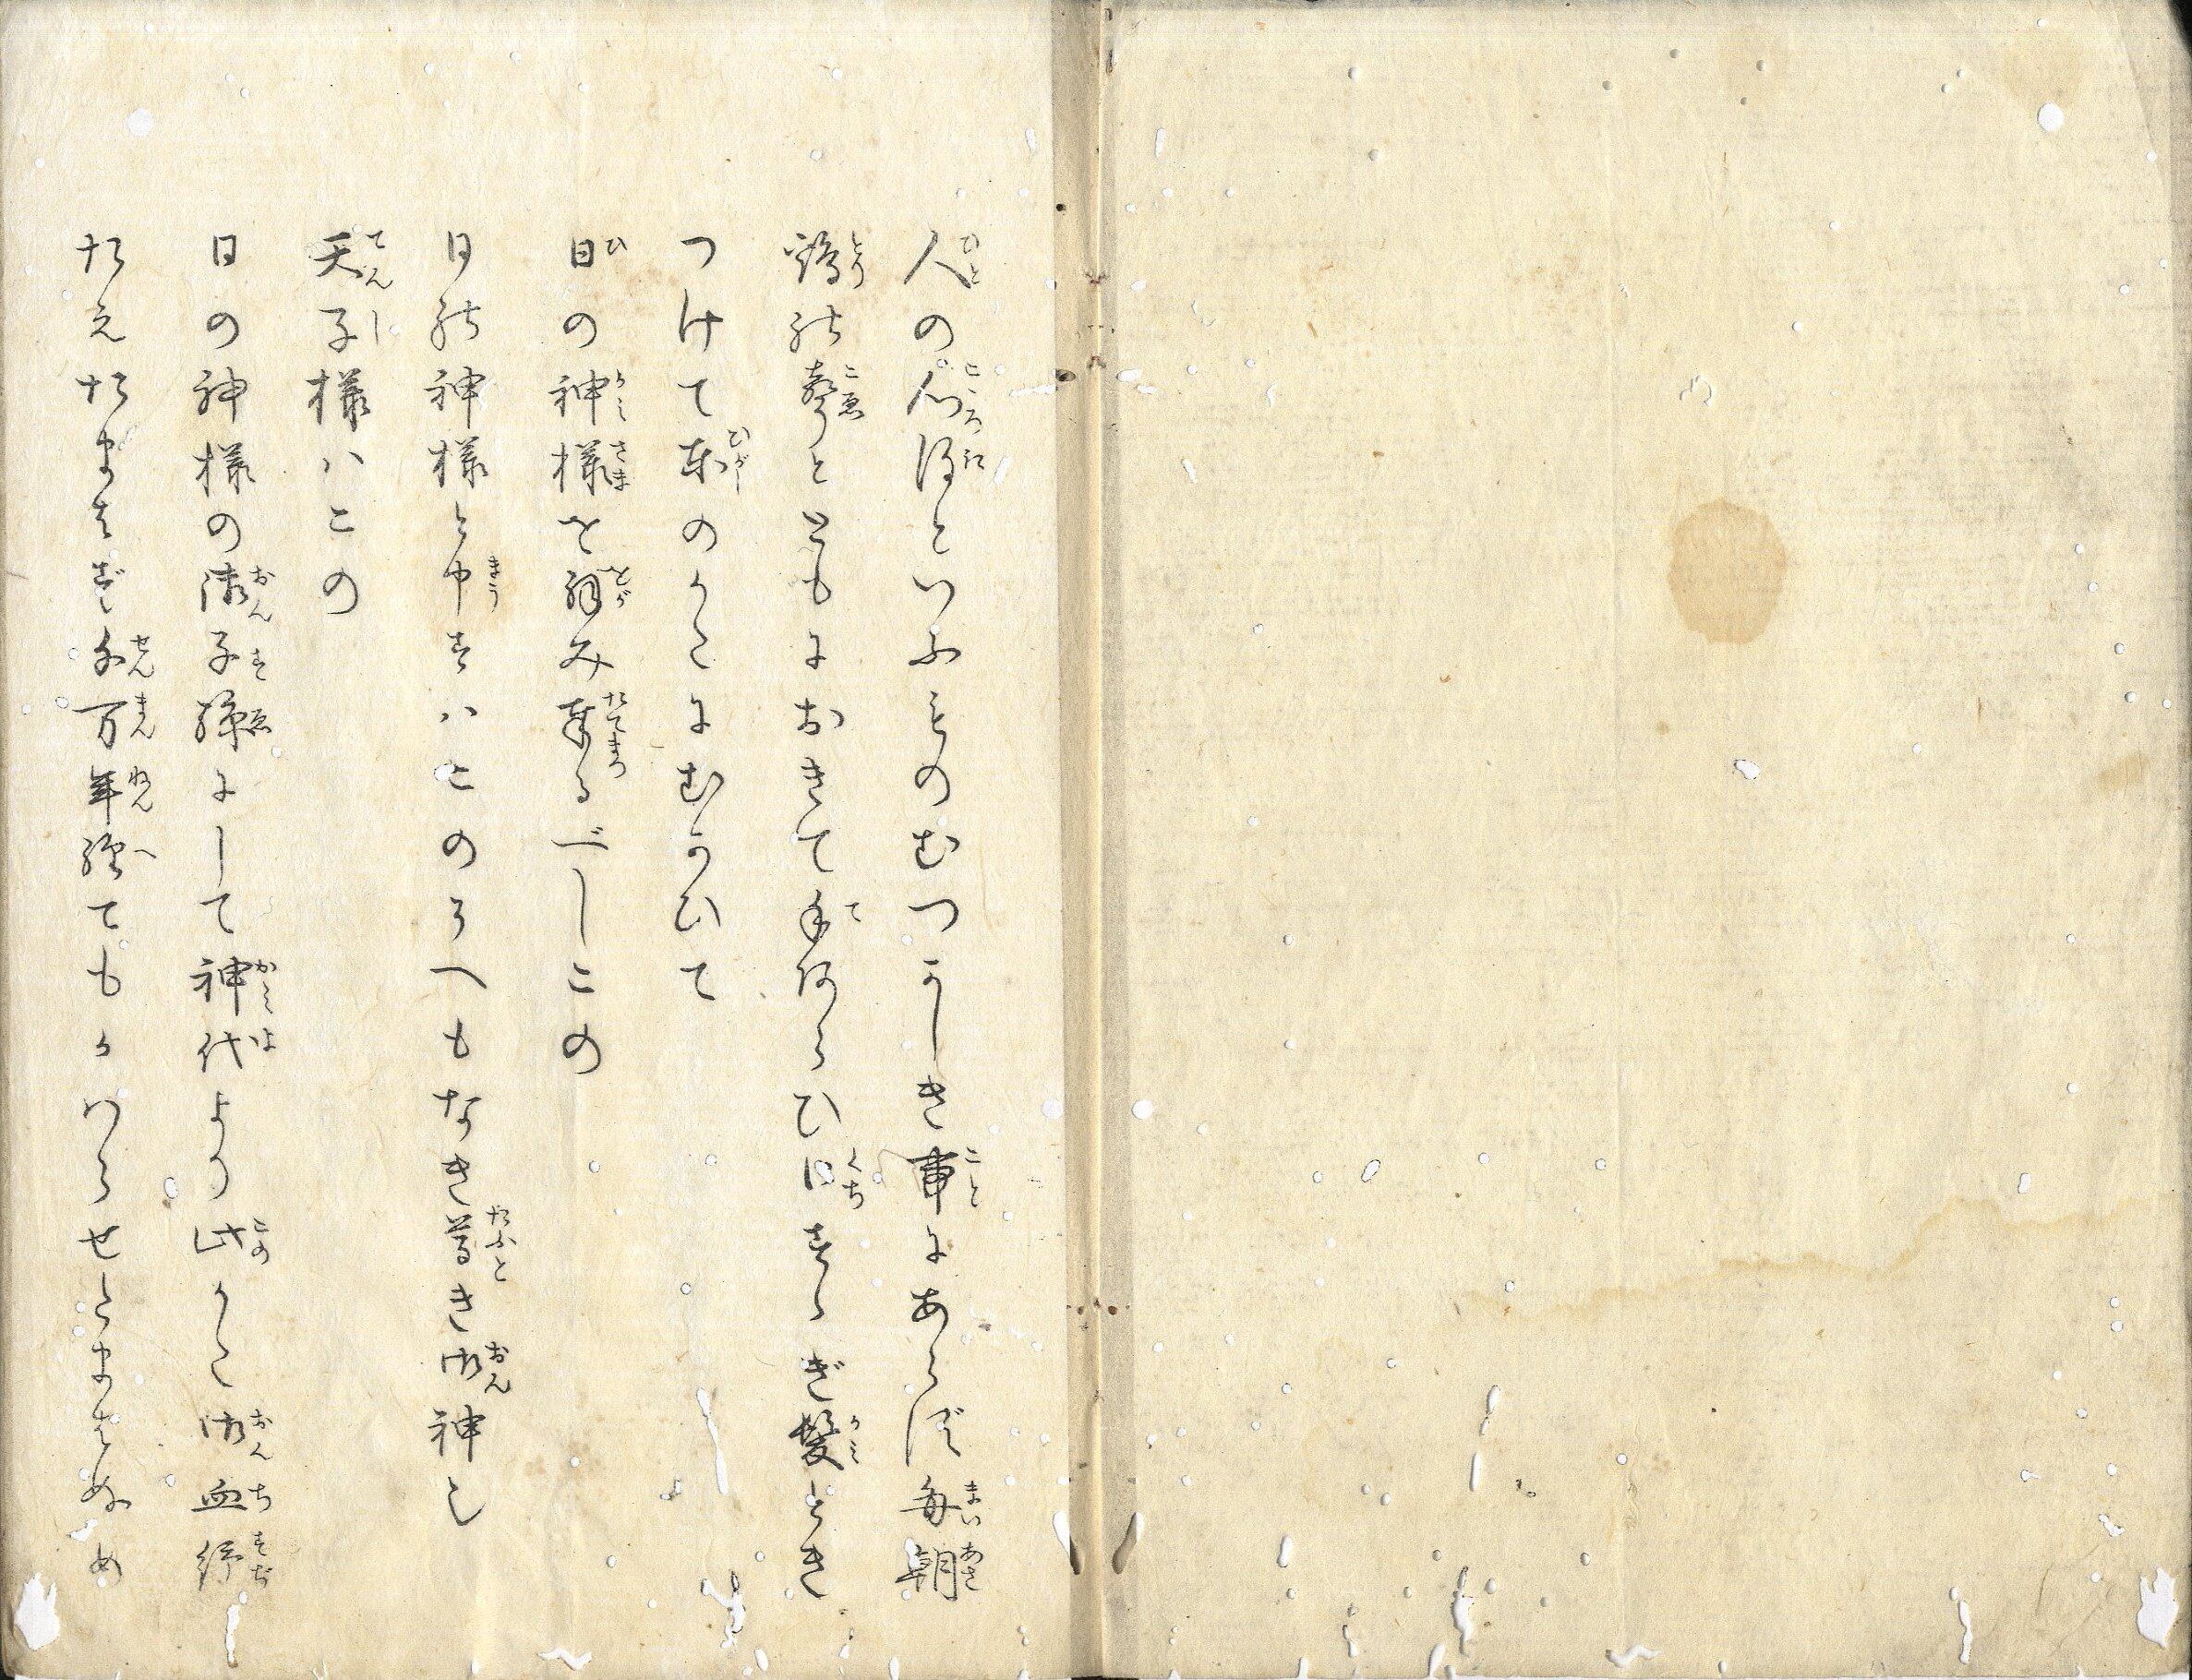 人の心得といふものむつかしき事にあらず毎朝
鶏の声とともにおきて手あらひ口すゝぎ髪とき
つけて東のかたにむかひて
日の神様を拝み奉るべしこの
日の神様と申すハこのうへもなき尊き御神也
天子様ハこの
日の神様の御子孫にして神代より此かた御血縁
たえたまはず千万年経てもかはらせたまはぬめ